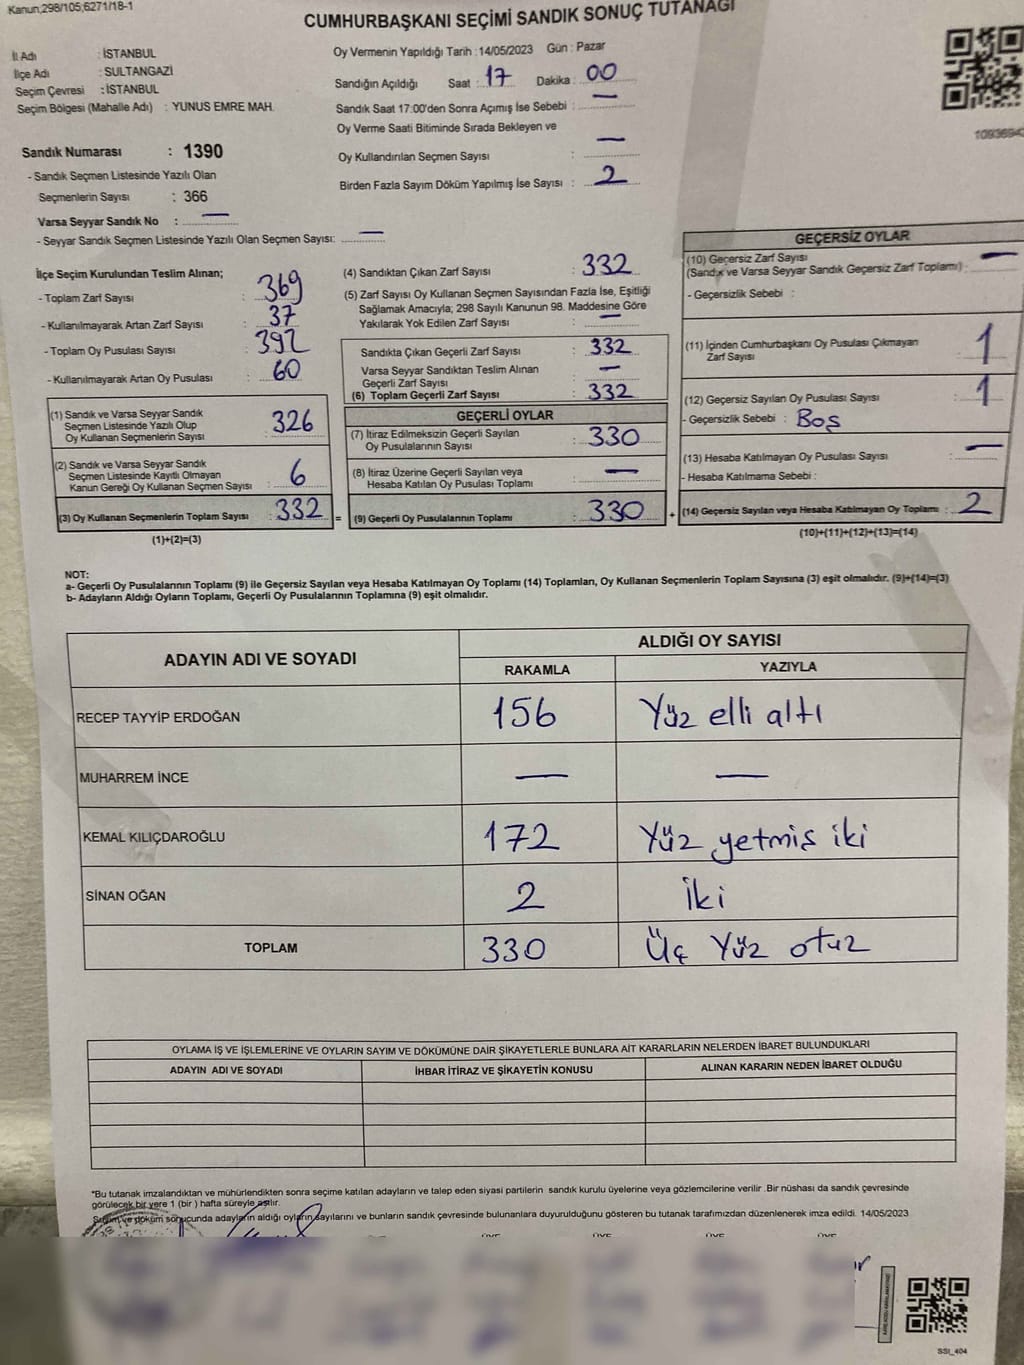 Kanun,298/105;6271/18-1
CUMHURBAŞKANI SEÇİMİ SANDIK SONUÇ TUTANAĞI
İl Adı : İSTANBUL
İlçe Adı : SULTANGAZİ
Seçim Çevresi : İSTANBUL
Seçim Bölgesi (Mahalle Adı) : YUNUS EMRE MAH.
Sandık Numarası : 1390
- Sandık Seçmen Listesinde Yazılı Olan
Seçmenlerin Sayısı : 366
Varsa Seyyar Sandık No : —
- Seyyar Sandık Seçmen Listesinde Yazılı Olan Seçmen Sayısı: —
Oy Vermenin Yapıldığı Tarih : 14/05/2023 Gün : Pazar
Sandığın Açıldığı Saat : 17 Dakika : 00
Sandık Saat 17:00'den Sonra Açımış İse Sebebi : —
Oy Verme Saati Bitiminde Sırada Bekleyen ve
Oy Kullandırılan Seçmen Sayısı : —
Birden Fazla Sayım Döküm Yapılmış İse Sayısı : 2
İlçe Seçim Kurulundan Teslim Alınan;
- Toplam Zarf Sayısı : 369
- Kullanılmayarak Artan Zarf Sayısı : 37
- Toplam Oy Pusulası Sayısı : 392
- Kullanılmayarak Artan Oy Pusulası : 60
(1) Sandık ve Varsa Seyyar Sandık
Seçmen Listesinde Yazılı Olup
Oy Kullanan Seçmenlerin Sayısı : 326
(2) Sandık ve Varsa Seyyar Sandık
Seçmen Listesinde Kayıtlı Olmayan
Kanun Gereği Oy Kullanan Seçmen Sayısı : 6
(3) Oy Kullanan Seçmenlerin Toplam Sayısı : 332
(1)+(2)=(3)
(4) Sandıktan Çıkan Zarf Sayısı : 332
(5) Zarf Sayısı Oy Kullanan Seçmen Sayısından Fazla İse, Eşitliği
Sağlamak Amacıyla, 298 Sayılı Kanunun 98. Maddesine Göre
Yakılarak Yok Edilen Zarf Sayısı : —
Sandıkta Çıkan Geçerli Zarf Sayısı : 332
Varsa Seyyar Sandıktan Teslim Alınan
Geçerli Zarf Sayısı : —
(6) Toplam Geçerli Zarf Sayısı : 332
GEÇERLİ OYLAR
(7) İtiraz Edilmeksizin Geçerli Sayılan
Oy Pusulalarının Sayısı : 330
(8) İtiraz Üzerine Geçerli Sayılan veya
Hesaba Katılan Oy Pusulası Toplamı : —
= (9) Geçerli Oy Pusulalarının Toplamı : 330
GEÇERSİZ OYLAR
(10) Geçersiz Zarf Sayısı
(Sandık ve Varsa Seyyar Sandık Geçersiz Zarf Toplamı) : —
- Geçersizlik Sebebi :
(11) İçinden Cumhurbaşkanı Oy Pusulası Çıkmayan
Zarf Sayısı : 1
(12) Geçersiz Sayılan Oy Pusulası Sayısı : 1
- Geçersizlik Sebebi : Boş
(13) Hesaba Katılmayan Oy Pusulası Sayısı : —
- Hesaba Katılmama Sebebi :
+ (14) Geçersiz Sayılan veya Hesaba Katılmayan Oy Toplamı : 2
(10)+(11)+(12)+(13)=(14)
NOT:
a- Geçerli Oy Pusulalarının Toplamı (9) ile Geçersiz Sayılan veya Hesaba Katılmayan Oy Toplamı (14) Toplamları, Oy Kullanan Seçmenlerin Toplam Sayısına (3) eşit olmalıdır. (9)+(14)=(3)
b- Adayların Aldığı Oyların Toplamı, Geçerli Oy Pusulalarının Toplamına (9) eşit olmalıdır.
ADAYIN ADI VE SOYADI
ALDIĞI OY SAYISI
RAKAMLA YAZIYLA
RECEP TAYYİP ERDOĞAN 156 Yüz elli altı
MUHARREM İNCE — —
KEMAL KILIÇDAROĞLU 172 Yüz yetmiş iki
SİNAN OĞAN 2 İki
TOPLAM 330 Üç Yüz otuz
OYLAMA İŞ VE İŞLEMLERİNE VE OYLARIN SAYIM VE DÖKÜMÜNE DAİR ŞİKAYETLERLE BUNLARA AİT KARARLARIN NELERDEN İBARET BULUNDUKLARI
ADAYIN ADI VE SOYADI İHBAR İTİRAZ VE ŞİKAYETİN KONUSU ALINAN KARARIN NEDEN İBARET OLDUĞU
*Bu tutanak imzalandıktan ve mühürlendikten sonra seçime katılan adayların ve talep eden siyasi partilerin sandık kurulu üyelerine veya gözlemcilerine verilir. Bir nüshası da sandık çevresinde
görülecek bir yere 1 (bir ) hafta süreyle asılır.
ve döküm sonucunda adayların aldığı oyların sayılarını ve bunların sandık çevresinde bulunanlara duyurulduğunu gösteren bu tutanak tarafımızdan düzenlenerek imza edildi. 14/05/2023
SSI_404